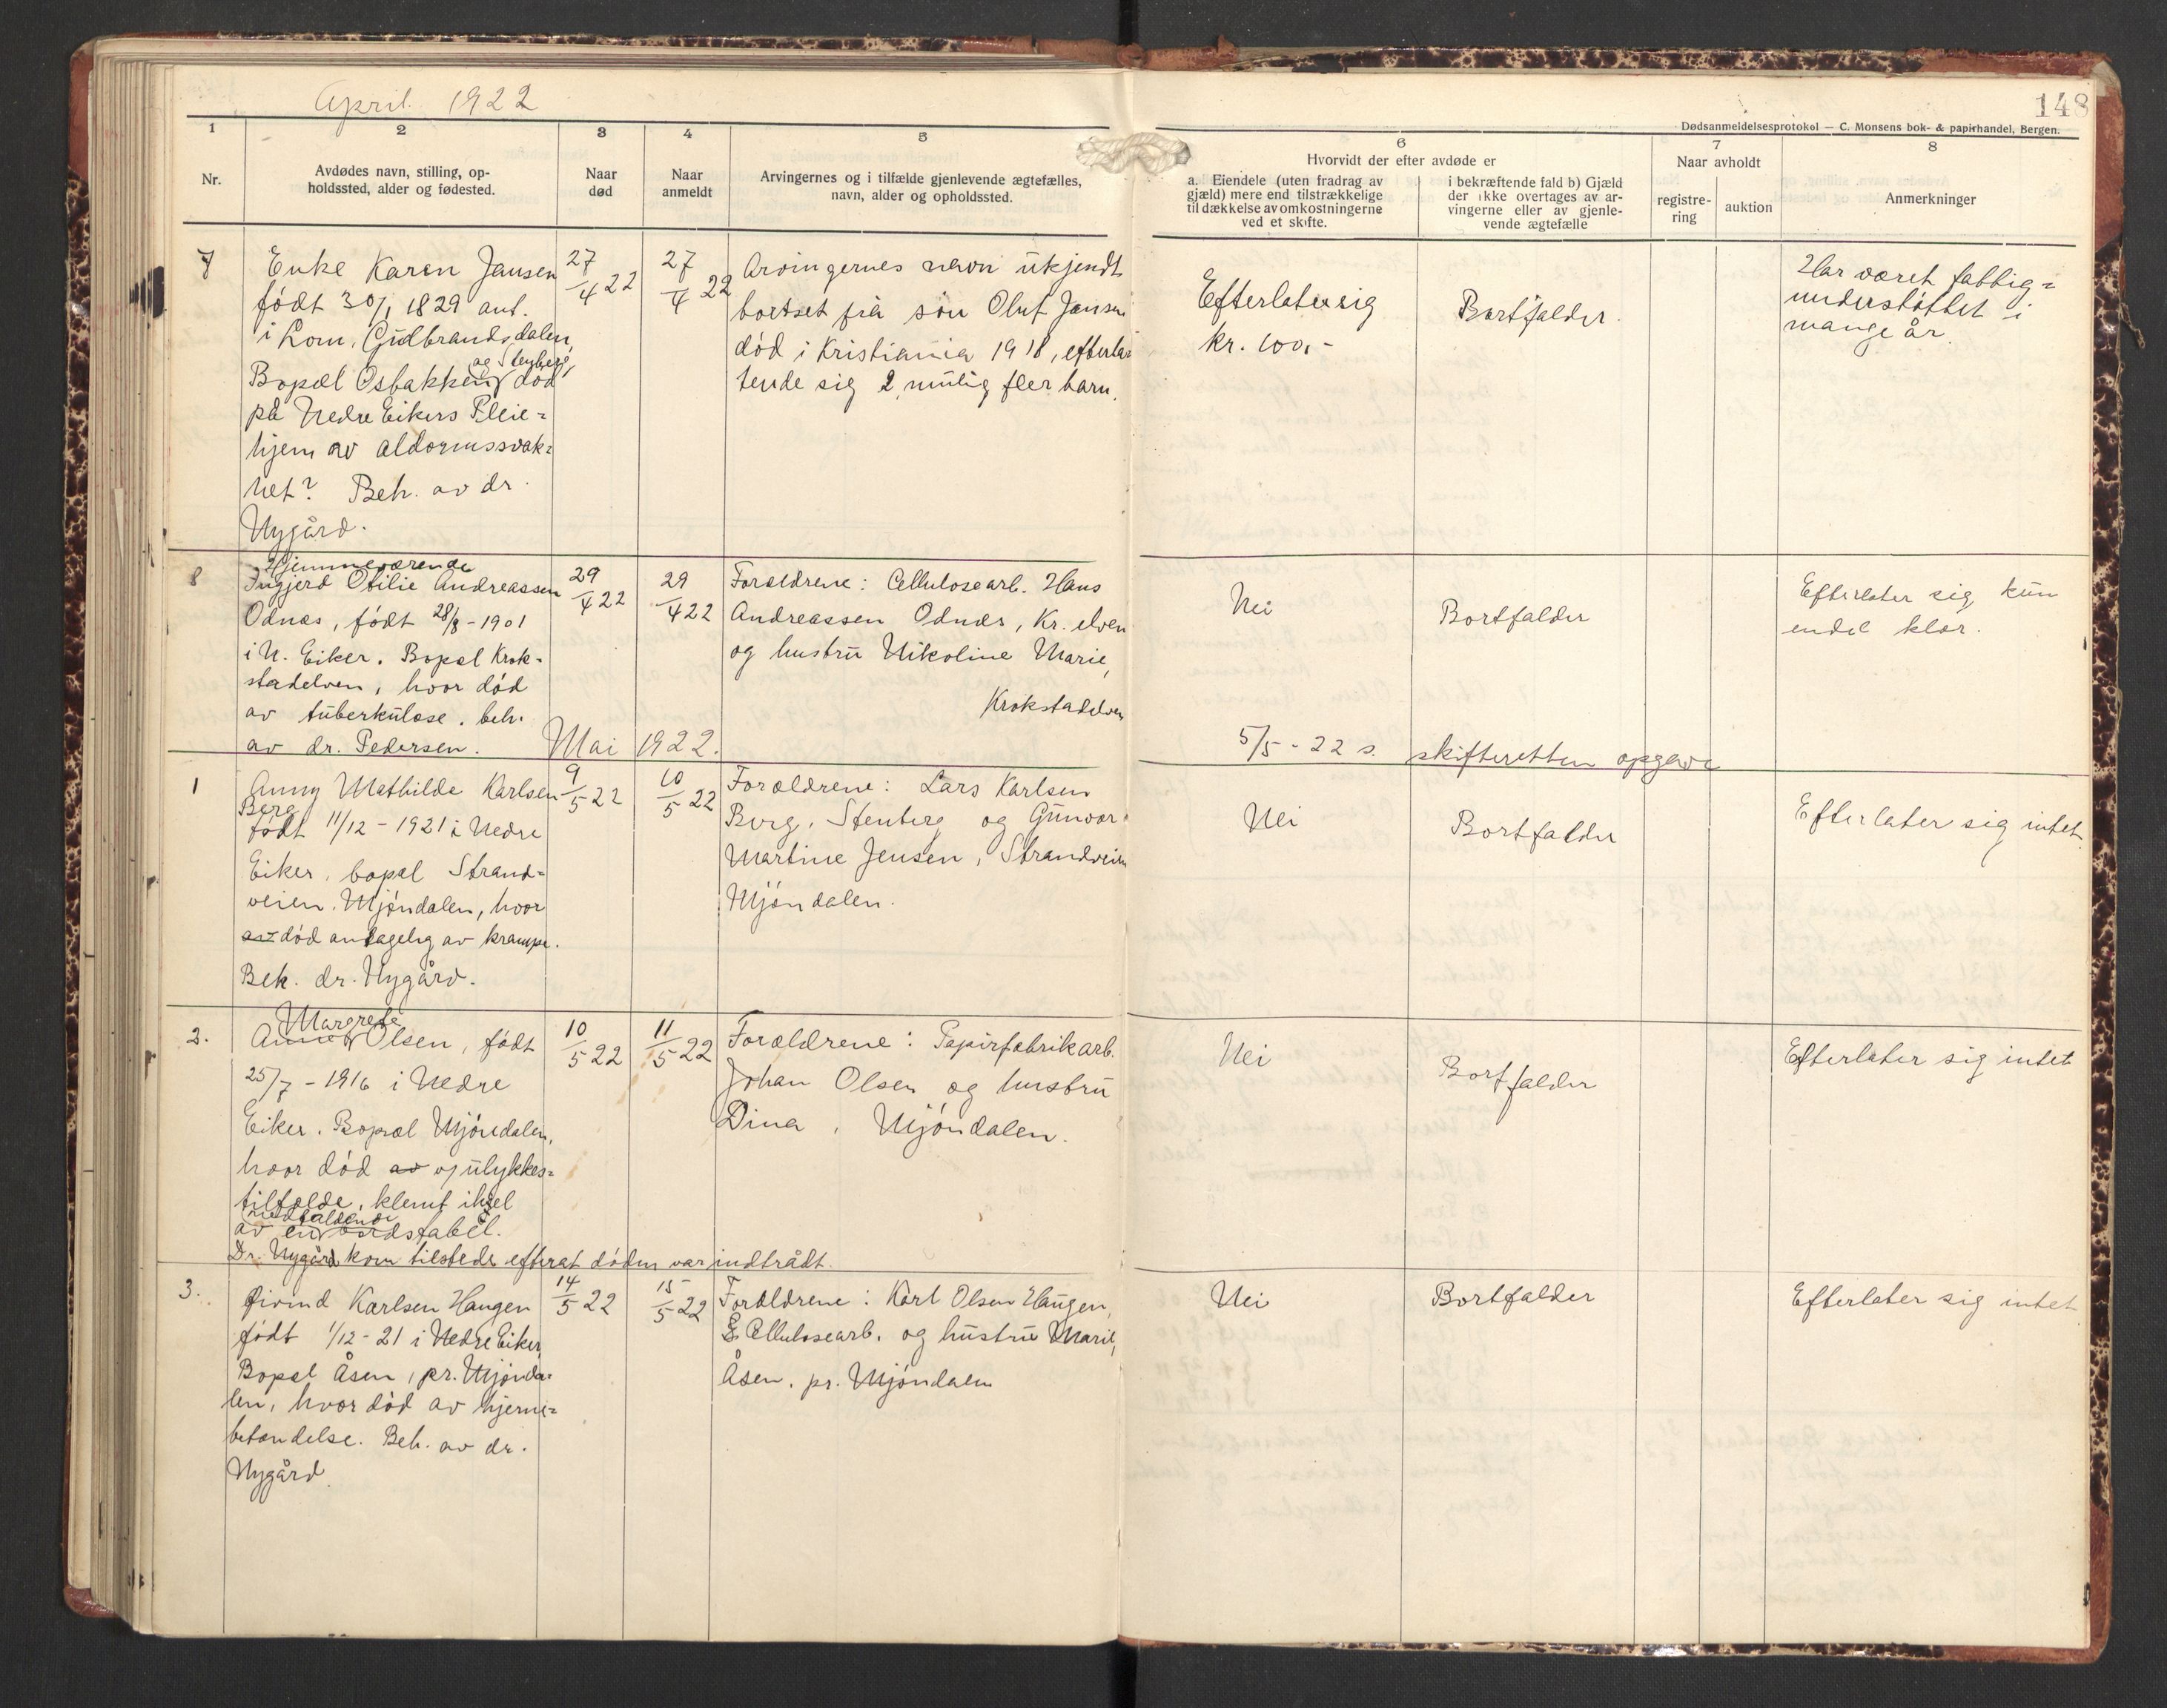 April 1922
148
Dødsanmeldelsesprotokol — C. Monsens bok- & papirhandel, Bergen.
1
2
3
4
5
6
7
8
Nr.
Avdødes navn, stilling, op-
holdssted, alder og fødested.
Naar
død
Naar
anmeldt
Arvingernes og i tilfælde gjenlevende ægtefælles,
navn, alder og opholdssted.
Hvorvidt der efter avdøde er
a. Eiendele (uten fradrag av
gjæld) mere end tilstrækkelige
til dækkelse av omkostningerne
ved et skifte.
i bekræftende fald b) Gjæld
der ikke overtages av ar-
vingerne eller av gjenle-
vende ægtefælle
Naar avholdt
registre-
ring
auktion
Anmerkninger
7
Enke Karen Jansen
født 30/1 1829 ant.
i Lom, Gudbrandsdalen,
og Stenberg,
Bopæl Osbakken død
på Nedre Eikers Pleie=
hjem av aldornssvak=
het? Beh. av dr.
Nygård.
27/4 22
27/4 22
Arvingernes navn ukjendt
bortset frå søn Oluf Jansen
død i Kristiania 1918, efterla
tende sig 2, mulig fler barn.
Efterlater sig
kr. 100,-
Bortfalder.
Har været fattig=
understøttet i
mange år.
8
Hjemmeværende
Ingjerd Otilie Andreassen
Odnæs, født 28/8 - 1901
i N. Eiker. Bopæl Krok-
stadelven, hvor død
av tuberkulose. beh.
av dr. Pedersen.
29/4 22
29/4 22
Forældrene: Cellulosearb. Hans
Andreassen Odnæs, Kr. elven
og hustru Nikoline Marie,
Krokstadelven
Nei
Bortfalder
Efterlater sig kun
endel klær.
Mai 1922.
5/5 - 22 s. skifteretten opgave
1
Anny Mathilde Karlsen
Berg
født 11/12 - 1921 i Nedre
Eiker, bopæl Strand=
veien. Mjøndalen, hvor
av død antagelig av krampe.
Beh. dr. Nygård.
9/5 22
10/5 22
Forældrene: Lars Karlsen
Berg, Stenberg og Gunvor
Martine Jensen, Strandveien
Mjøndalen.
Nei
Bortfalder
Efterlater sig intet.
2.
Margrete
Anne Olsen, født
25/7 - 1916 i Nedre
Eiker. Bopæl Mjøndalen,
hvor død av v/ulykkes=
tilfælde, klemt ihjel
nedfaldende
av en bordstabel.
Dr. Nygård kom tilstede efterat døden var indtrådt.
10/5 22
11/5 22
Forældrene: Papirfabrikarb.
Johan Olsen og hustru
Dina, Mjøndalen.
Nei
Bortfalder
Efterlater sig intet
3.
Øivind Karlsen Haugen
født 1/12 - 21 i Nedre Eiker
Bopæl Åsen, pr. Mjønda=
len, hvor død av hjerne=
betændelse. Beh. av dr.
Nygård
14/5 22
15/5 22
Forældrene: Karl Olsen Haugen,
Cellulosearb. og hustru Marie,
Åsen, pr. Mjøndalen
Nei
Bortfalder
Efterlater sig intet